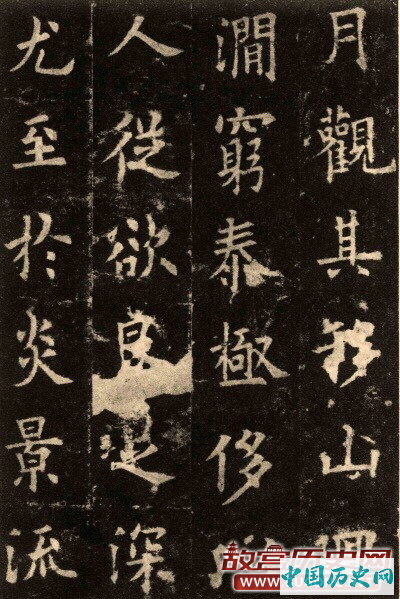 月觀其移山
澗窮泰極侈
人從欲良足深
尤至於炎景流
故宫历史网
中国历史网